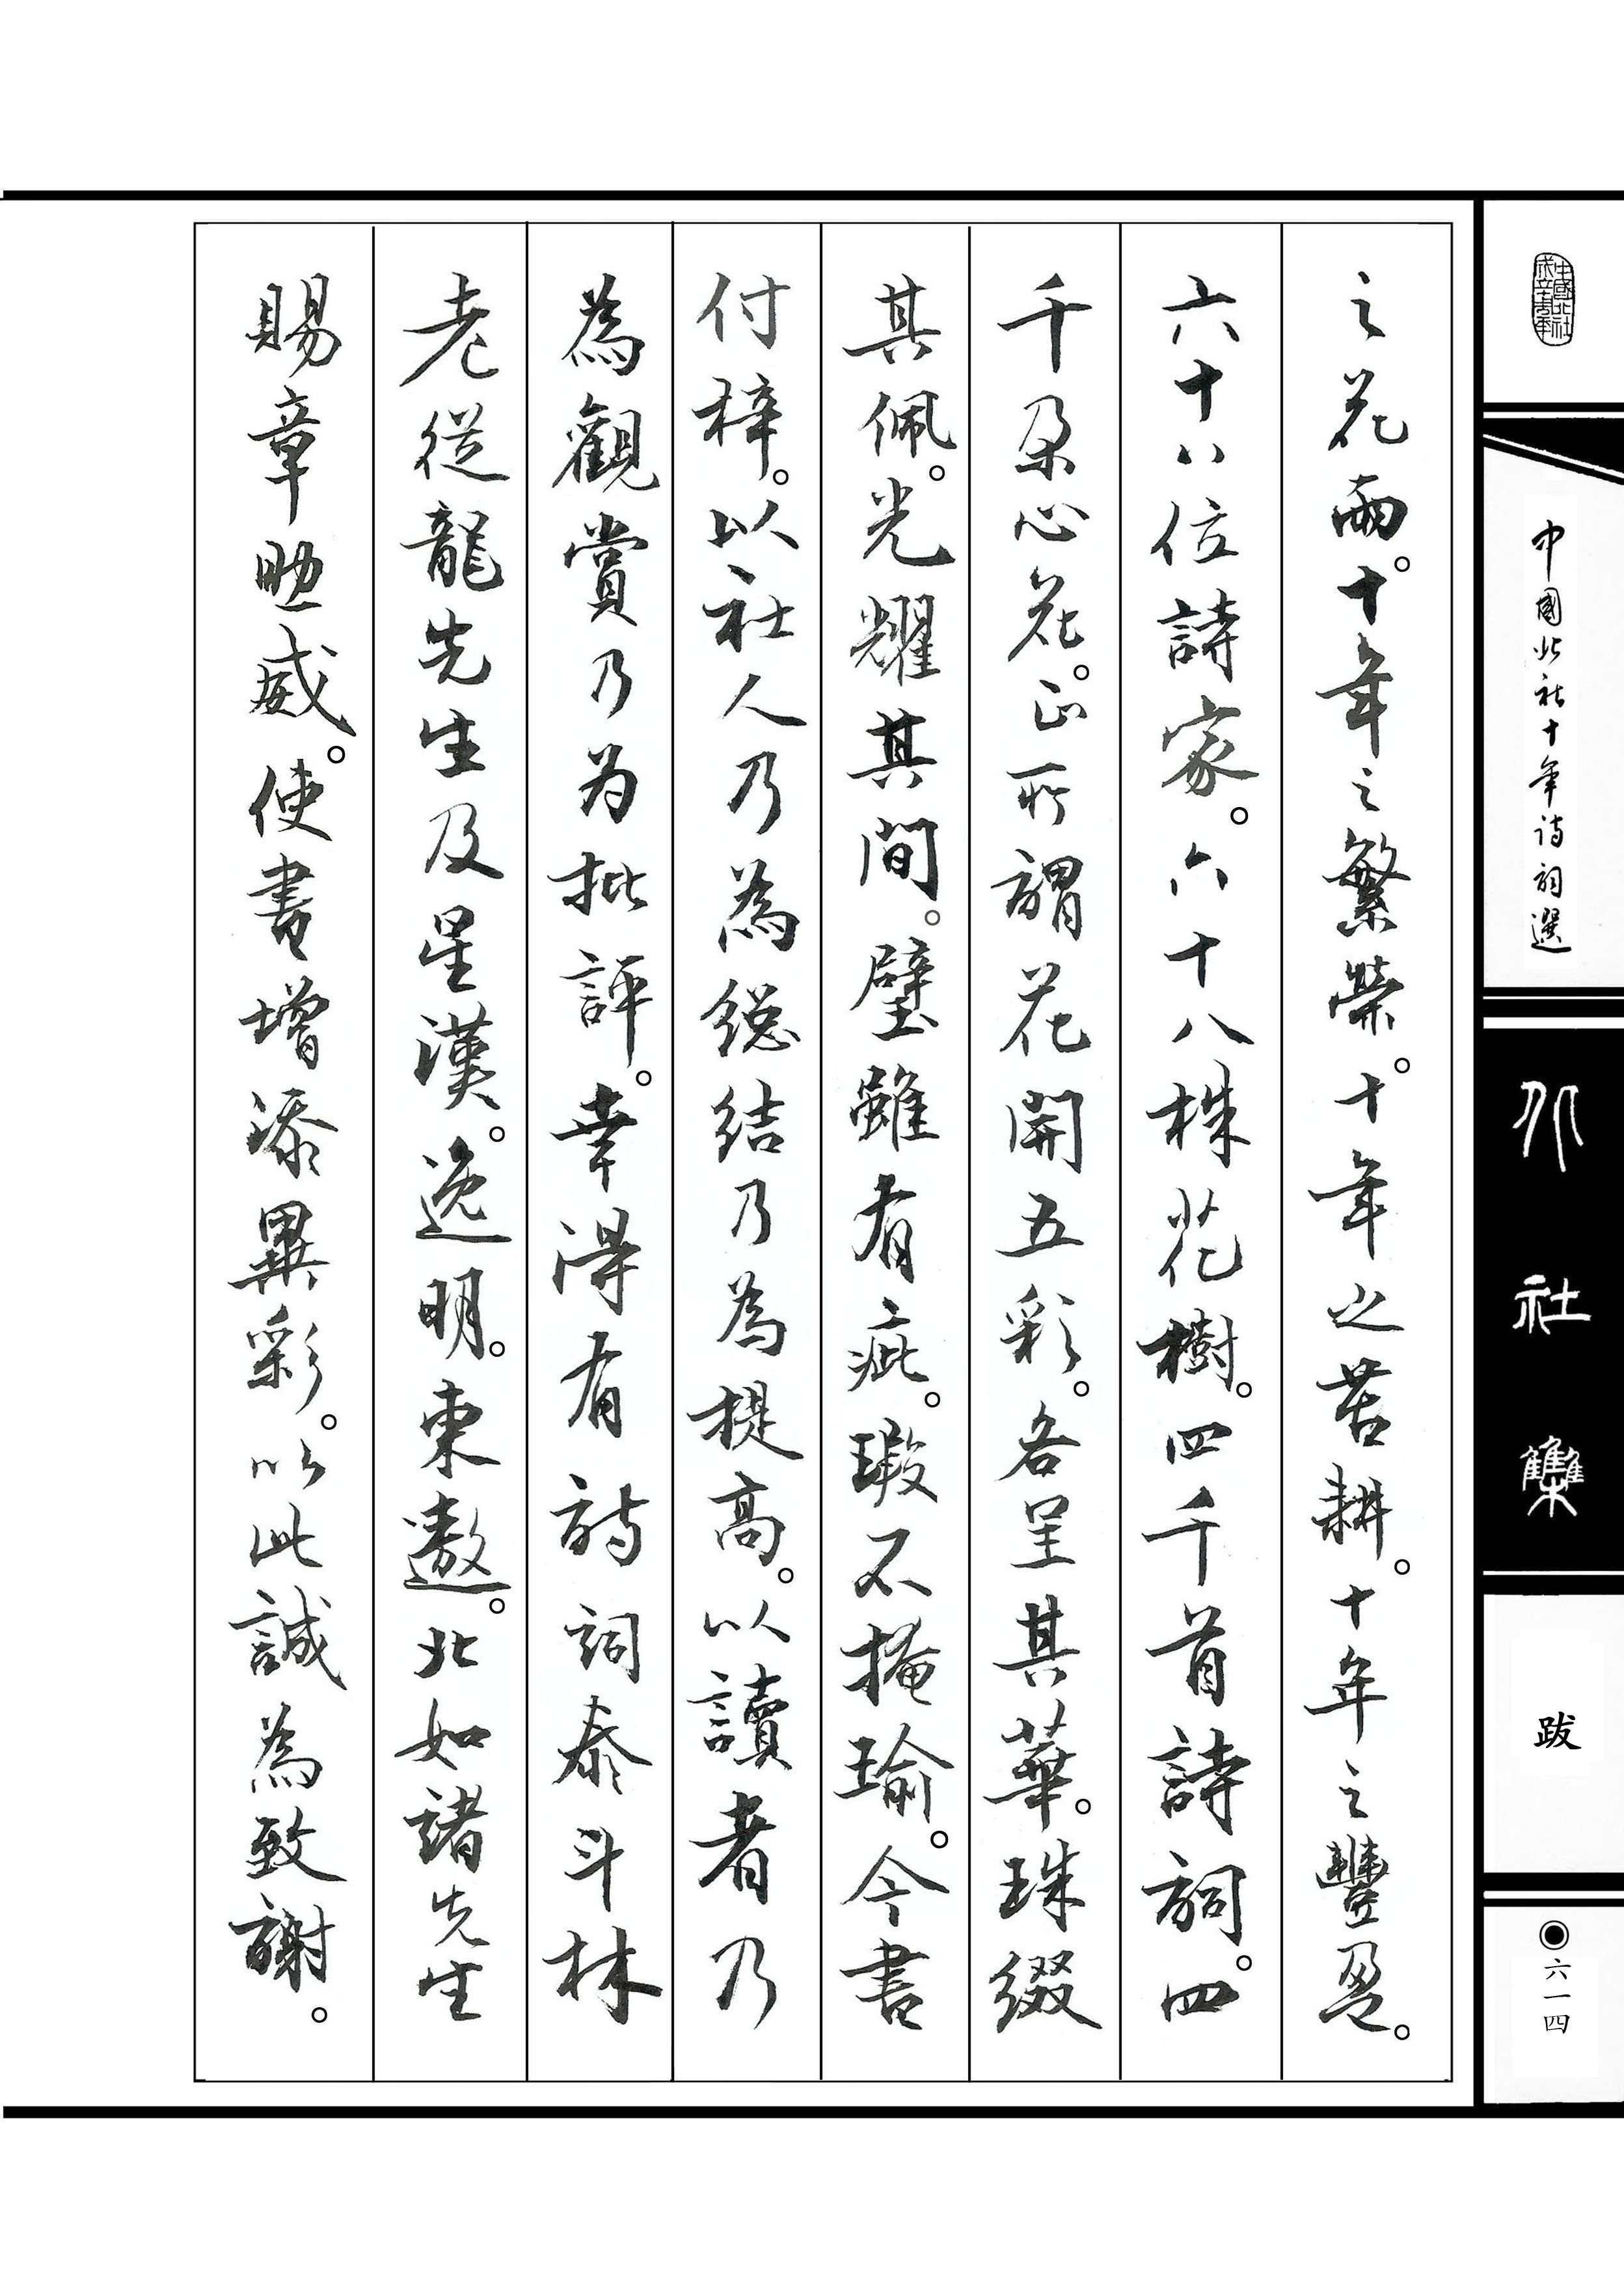 中國北社十年詩詞選
北社集
跋
六一四
之花雨。十年之繁榮。十年之苦耕。十年之豐盈。
六十八位詩家。六十八株花樹。四千首詩詞。四
千朵心花。正所謂花開五彩。各呈其華。珠綴
其佩。光耀其間。璧雖有疵。瑕不掩瑜。今書
付梓。以社人乃為總結乃為提高。以讀者乃
為觀賞乃为批評。幸得有詩詞泰斗林
老從龍先生及星漢。逸明。東遨。北如諸先生
賜章助威。使書增添異彩。以此誠為致謝。